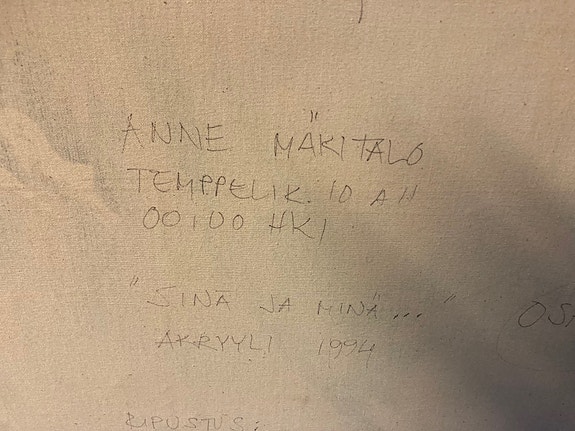 ANNE MÄKITALO
TEMPPELIK. 10 A 11
00100 HKI
"SINÄ JA MINÄ..."
AKRYYLI 1994
RIPUSTUS: